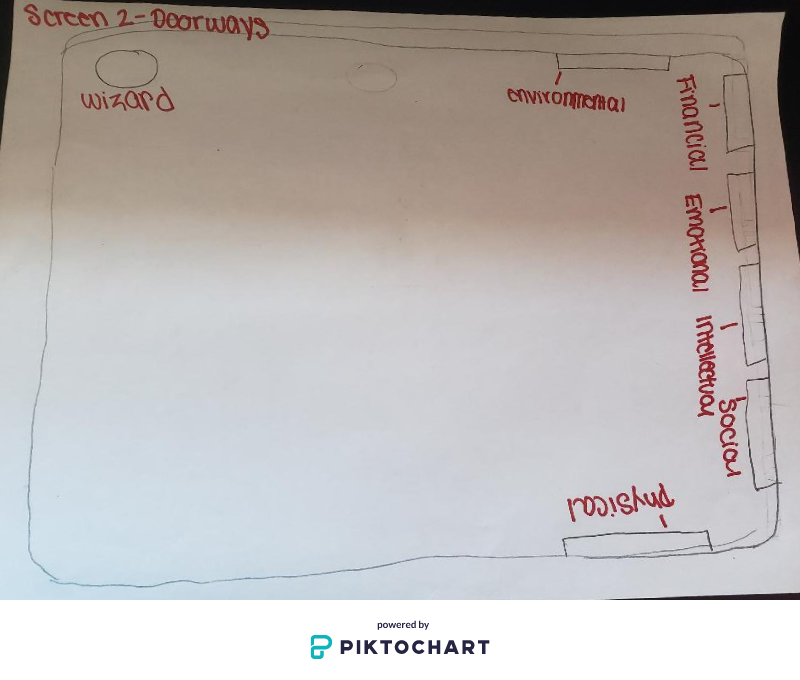 Screen 2-Doorways
wizard
environmental
Financial
Emotional
Intellectual
Social
Physical
powered by
PIKTOCHART